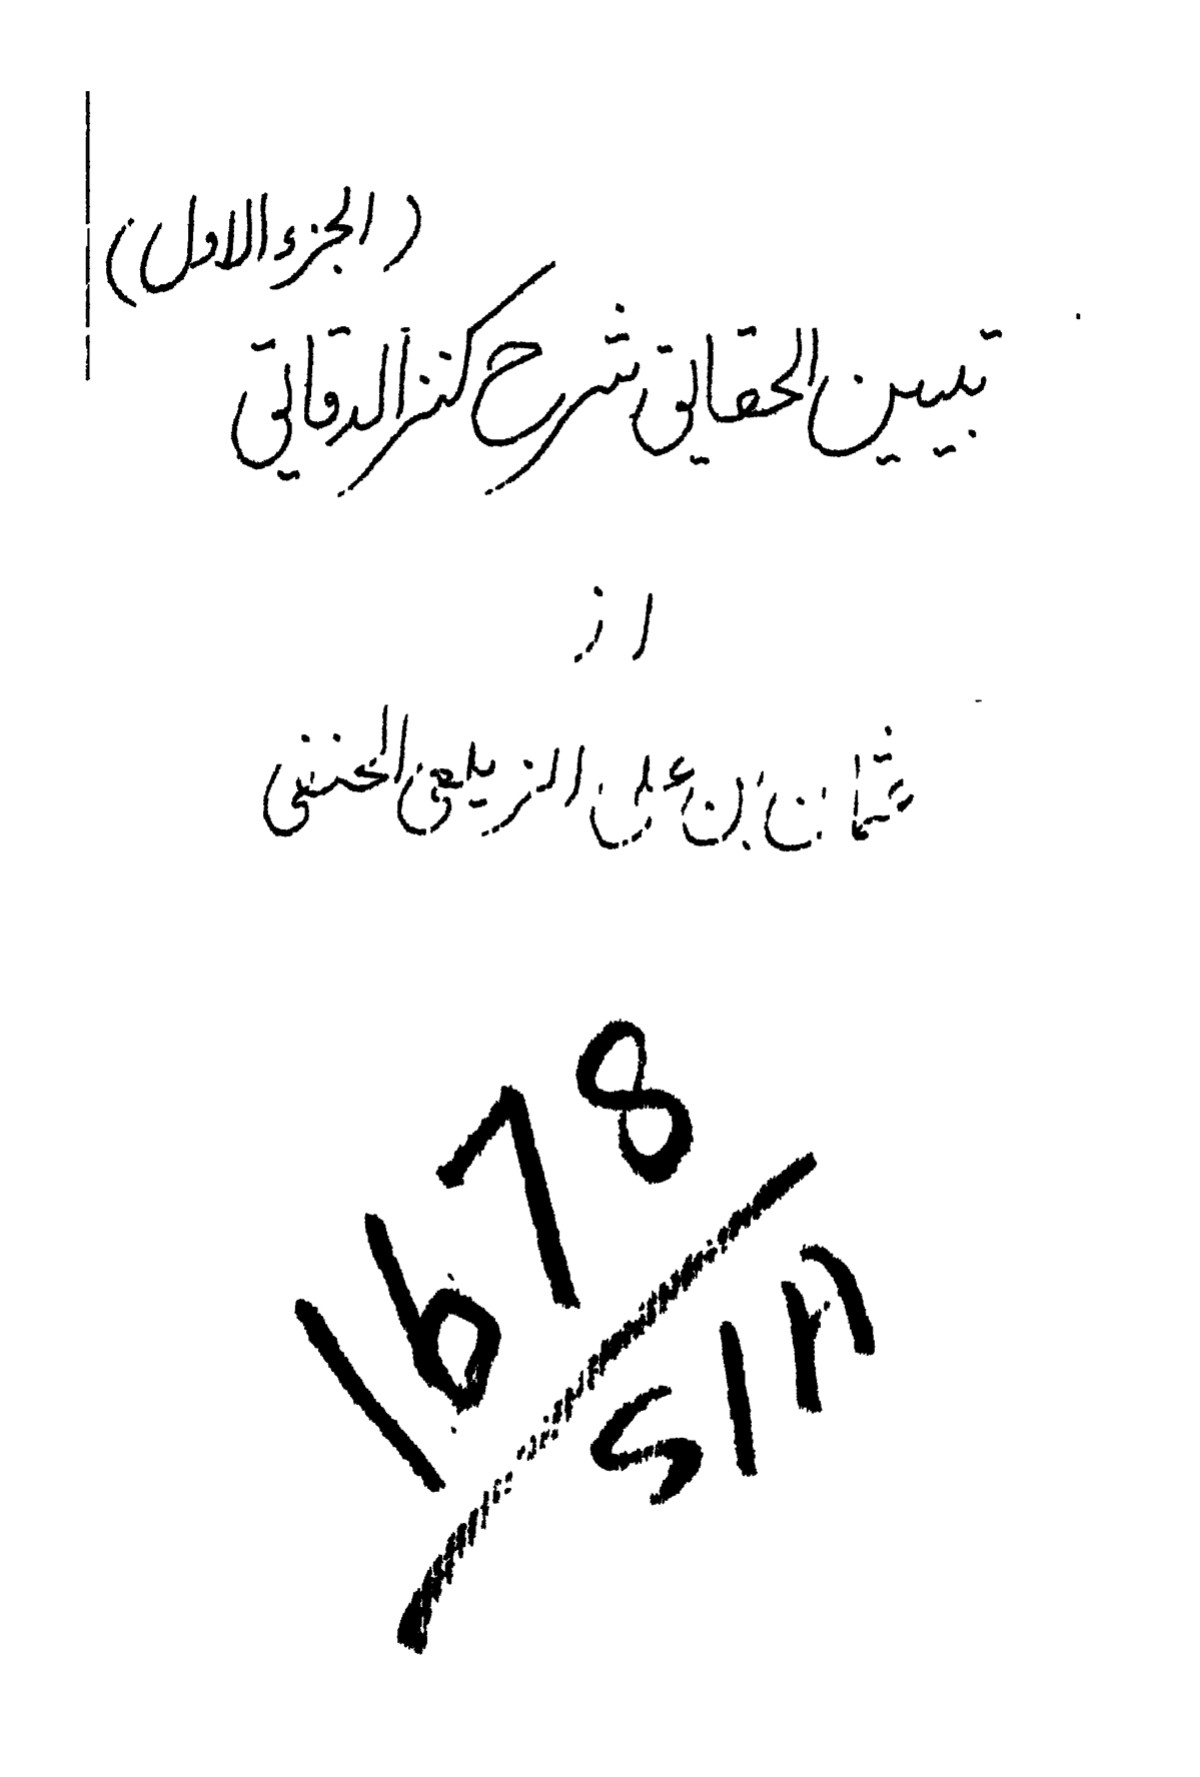 (الجزء الاول)
تبيين الحقائق شرح كنز الدقائق
از
عثمان بن على الزيلعى الحنفى
1678